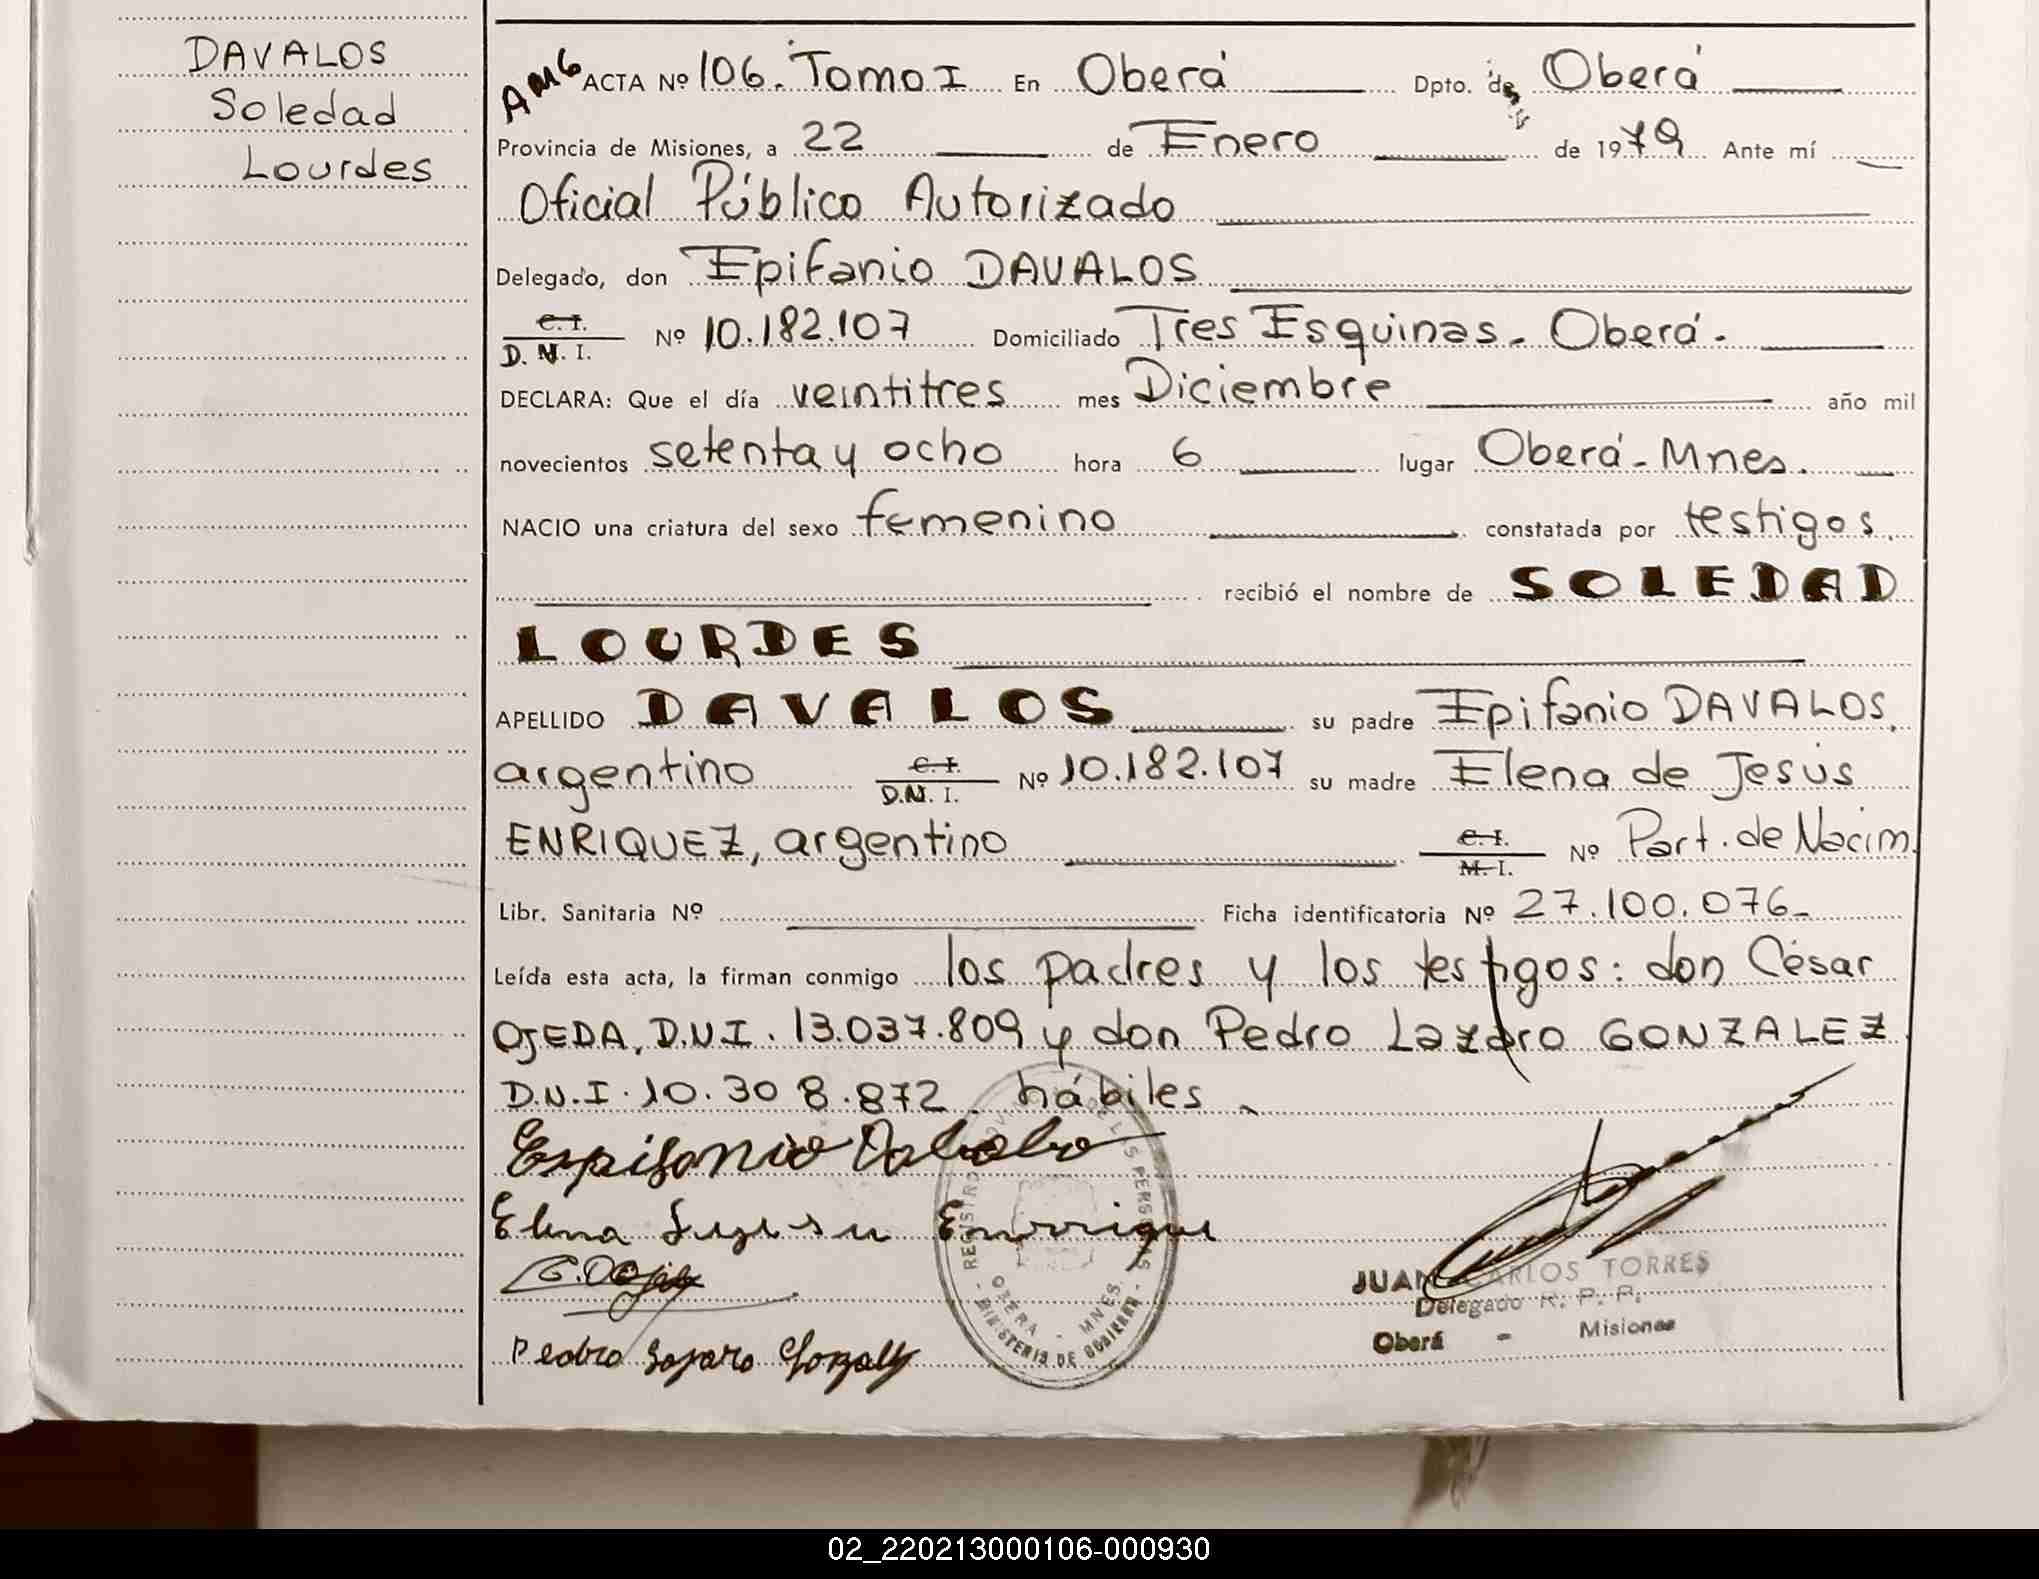 DAVALOS
Soledad
Lourdes
AMG ACTA Nº 106. Tomo I En Oberá Dpto. de Oberá
Provincia de Misiones, a 22 de Enero de 1979 Ante mí
Oficial Público Autorizado
Delegado, don Epifanio DAVALOS
C. I.
D. N. I. Nº 10.182.107 Domiciliado Tres Esquinas - Oberá -
DECLARA: Que el día veintitres mes Diciembre año mil
novecientos setenta y ocho hora 6 lugar Oberá - Mnes.
NACIO una criatura del sexo femenino constatada por testigos
recibió el nombre de SOLEDAD
LOURDES
APELLIDO DAVALOS su padre Epifanio DAVALOS,
argentino C. I. D.N. I. Nº 10.182.107 su madre Elena de Jesús
ENRIQUEZ, argentino C. I. M. I. Nº Part. de Nacim.
Libr. Sanitaria Nº Ficha identificatoria Nº 27.100.076-
Leída esta acta, la firman conmigo los padres y los testigos: don César
OJEDA, D.N.I. 13.037.809 y don Pedro Lazaro GONZALEZ
D.N.I. 10.308.872. hábiles -
Elena
Pedro
REGISTRO DE LAS PERSONAS
OBERA - MNES.
MINISTERIO DE GOBIERNO
JUAN CARLOS TORRES
Delegado R. P. P.
Oberá - Misiones
02_220213000106-000930